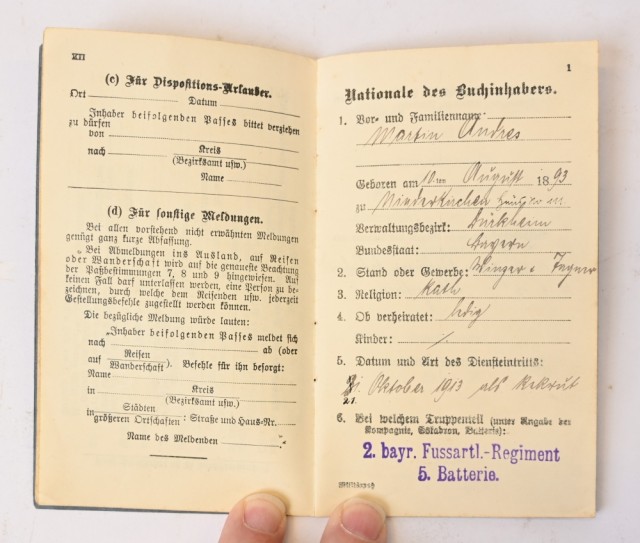 XII
(c) Für Dispositions-Urlauber.
Ort Datum
Inhaber beifolgenden Passes bittet verziehen
zu dürfen
von
nach Kreis
(Bezirksamt usw.)
Name
(d) Für sonstige Meldungen.
Bei allen vorstehend nicht erwähnten Meldungen
genügt ganz kurze Abfassung.
Bei Abmeldungen ins Ausland, auf Reisen
oder Wanderschaft wird auf die genaueste Beachtung
der Paßbestimmungen 7, 8 und 9 hingewiesen. Auf
keinen Fall darf unterlassen werden, eine Person zu be-
zeichnen, durch welche dem Reisenden usw. jederzeit
Gestellungsbefehle zugestellt werden können.
Die bezügliche Meldung würde lauten:
„Inhaber beifolgenden Passes meldet sich
nach ab (oder
auf Reisen
Wanderschaft). Befehle für ihn besorgt:
Name
in Kreis
(Bezirksamt usw.)
in Städten
größeren Ortschaften: Straße und Haus-Nr.
Name des Meldenden
1
Nationale des Buchinhabers.
1. Vor- und Familienname:
Martin Andres
Geboren am 10ten August 1893
zu Niederkirchen
Verwaltungsbezirk: Dürkheim
Bundesstaat: Bayern
2. Stand oder Gewerbe: Winzer
3. Religion: Kath
4. Ob verheiratet: ledig
Kinder: /
5. Datum und Art des Diensteintritts:
Oktober 1913 als Rekrut
6. Bei welchem Truppenteil (unter Angabe der
Kompagnie, Eskadron, Batterie):
2. bayr. Fussartl.-Regiment
5. Batterie.